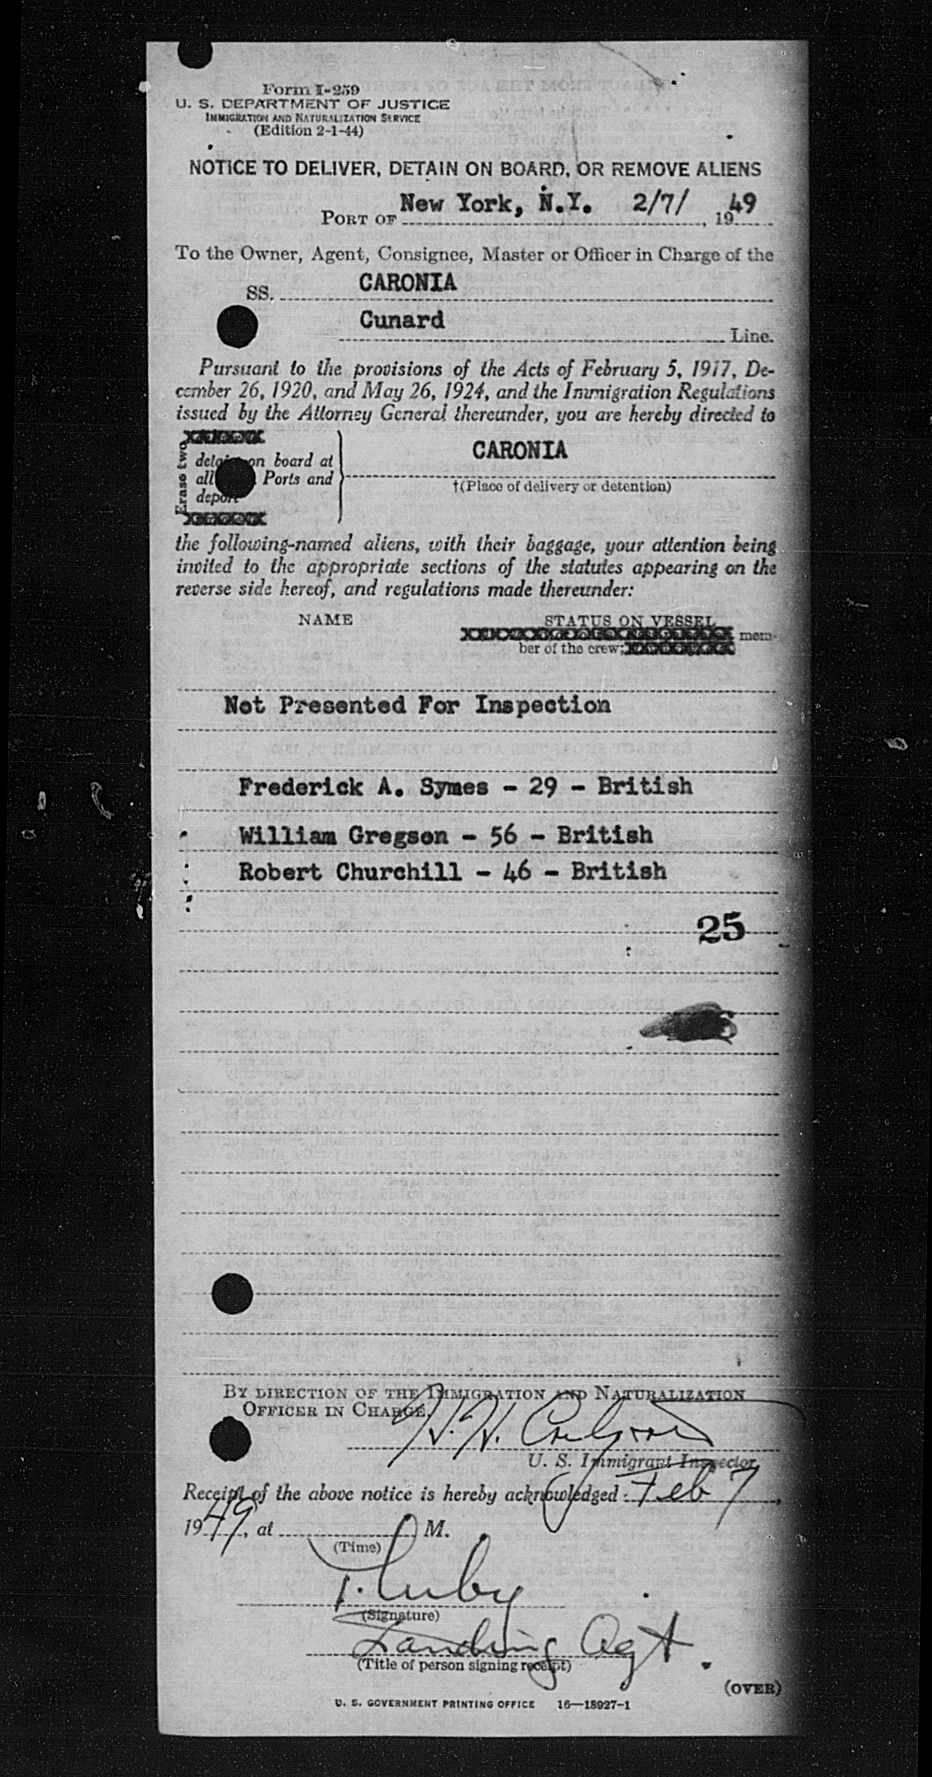 Form I-259
U. S. DEPARTMENT OF JUSTICE
IMMIGRATION AND NATURALIZATION SERVICE
(Edition 2-1-44)
NOTICE TO DELIVER, DETAIN ON BOARD, OR REMOVE ALIENS
PORT OF New York, N.Y. 2/7/, 1949
To the Owner, Agent, Consignee, Master or Officer in Charge of the
SS. CARONIA
Cunard Line.
Pursuant to the provisions of the Acts of February 5, 1917, De-
cember 26, 1920, and May 26, 1924, and the Immigration Regulations
issued by the Attorney General thereunder, you are hereby directed to
Erase two
on board at
all Ports and
deport
CARONIA
†(Place of delivery or detention)
the following-named aliens, with their baggage, your attention being
invited to the appropriate sections of the statutes appearing on the
reverse side hereof, and regulations made thereunder:
NAME STATUS ON VESSEL
mem-
ber of the crew;
Not Presented For Inspection
Frederick A. Symes - 29 - British
William Gregson - 56 - British
Robert Churchill - 46 - British
25
BY DIRECTION OF THE IMMIGRATION AND NATURALIZATION
OFFICER IN CHARGE.
U. S. Immigrant Inspector.
Receipt of the above notice is hereby acknowledged: Feb 7,
1949, at M.
(Time)
(Signature)
Landing Agt.
(Title of person signing receipt)
(OVER)
U. S. GOVERNMENT PRINTING OFFICE 16—18927-1